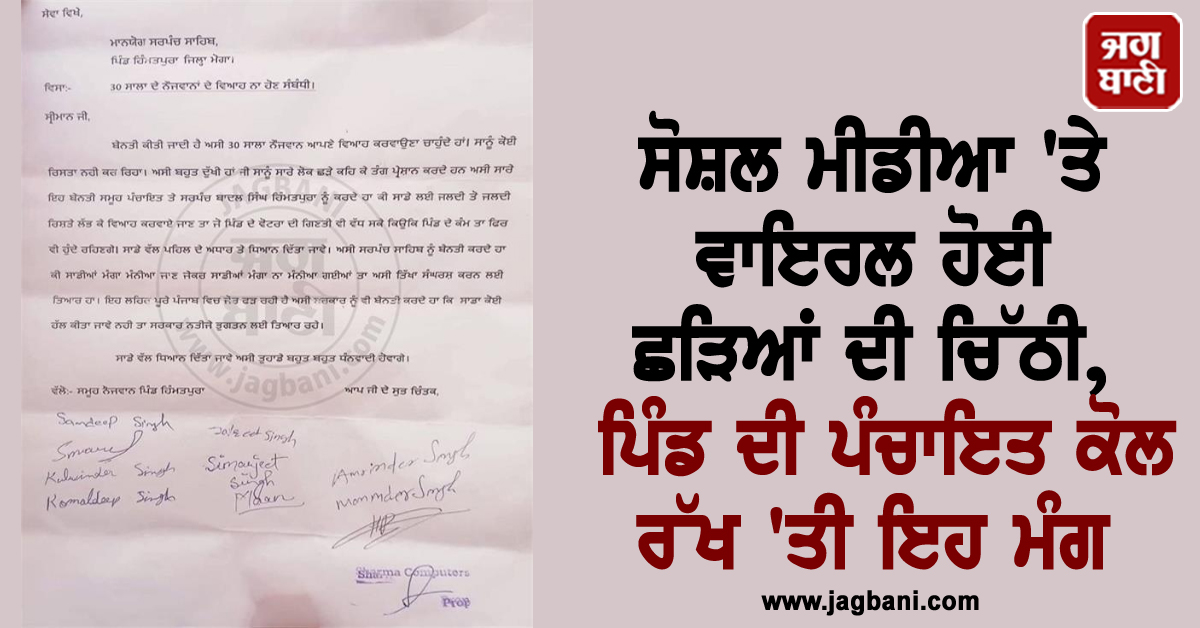 ਸੇਵਾ ਵਿਖੇ,
ਮਾਨਯੋਗ ਸਰਪੰਚ ਸਾਹਿਬ,
ਪਿੰਡ ਹਿੰਮਤਪੁਰਾ ਜਿਲ੍ਹਾ ਮੋਗਾ।
ਵਿਸਾ:- 30 ਸਾਲਾ ਦੇ ਨੌਜਵਾਨਾਂ ਦੇ ਵਿਆਹ ਨਾ ਹੋਣ ਸੰਬੰਧੀ।
ਸ੍ਰੀਮਾਨ ਜੀ,
ਬੇਨਤੀ ਕੀਤੀ ਜਾਦੀ ਹੈ ਅਸੀ 30 ਸਾਲਾ ਨੌਜਵਾਨ ਆਪਣੇ ਵਿਆਹ ਕਰਵਾਉਣਾ ਚਾਹੁੰਦੇ ਹਾਂ। ਸਾਨੂੰ ਕੋਈ
ਰਿਸਤਾ ਨਹੀ ਕਰ ਰਿਹਾ। ਅਸੀ ਬਹੁਤ ਦੁੱਖੀ ਹਾਂ ਜੀ ਸਾਨੂੰ ਸਾਰੇ ਲੋਕ ਛੜੇ ਕਹਿ ਕੇ ਤੰਗ ਪ੍ਰੇਸ਼ਾਨ ਕਰਦੇ ਹਨ ਅਸੀ ਸਾਰੇ
ਇਹ ਬੇਨਤੀ ਸਮੂਹ ਪੰਚਾਇਤ ਤੇ ਸਰਪੰਚ ਬਾਦਲ ਸਿੰਘ ਹਿੰਮਤਪੁਰਾ ਨੂੰ ਕਰਦੇ ਹਾ ਕੀ ਸਾਡੇ ਲਈ ਜਲਦੀ ਤੋ ਜਲਦੀ
ਰਿਸਤੇ ਲੱਭ ਕੇ ਵਿਆਹ ਕਰਵਾਏ ਜਾਣ ਤਾ ਜੋ ਪਿੰਡ ਦੇ ਵੋਟਰਾ ਦੀ ਗਿਣਤੀ ਵੀ ਵੱਧ ਸਕੇ ਕਿਉਕਿ ਪਿੰਡ ਦੇ ਕੰਮ ਤਾ ਫਿਰ
ਵੀ ਹੁੰਦੇ ਰਹਿਣਗੇ। ਸਾਡੇ ਵੱਲ ਪਹਿਲ ਦੇ ਅਧਾਰ ਤੇ ਧਿਆਨ ਦਿੱਤਾ ਜਾਵੇ। ਅਸੀ ਸਰਪੰਚ ਸਾਹਿਬ ਨੂੰ ਬੇਨਤੀ ਕਰਦੇ ਹਾ
ਕੀ ਸਾਡੀਆਂ ਮੰਗਾ ਮੰਨੀਆ ਜਾਣ ਜੇਕਰ ਸਾਡੀਆਂ ਮੰਗਾ ਨਾ ਮੰਨੀਆ ਗਈਆਂ ਤਾ ਅਸੀ ਤਿੱਖਾ ਸੰਘਰਸ਼ ਕਰਨ ਲਈ
ਤਿਆਰ ਹਾ। ਇਹ ਲਹਿਰ ਪੂਰੇ ਪੰਜਾਬ ਵਿਚ ਜੋਰ ਫੜ ਰਹੀ ਹੈ ਅਸੀ ਸਰਕਾਰ ਨੂੰ ਵੀ ਬੇਨਤੀ ਕਰਦੇ ਹਾ ਕਿ ਸਾਡਾ ਕੋਈ
ਹੱਲ ਕੀਤਾ ਜਾਵੇ ਨਹੀ ਤਾ ਸਰਕਾਰ ਨਤੀਜੇ ਭੁਗਤਨ ਲਈ ਤਿਆਰ ਰਹੇ।
ਸਾਡੇ ਵੱਲ ਧਿਆਨ ਦਿੱਤਾ ਜਾਵੇ ਅਸੀ ਤੁਹਾਡੇ ਬਹੁਤ ਬਹੁਤ ਧੰਨਵਾਦੀ ਹੋਵਾਗੇ।
ਵੱਲੋ:- ਸਮੂਹ ਨੌਜਵਾਨ ਪਿੰਡ ਹਿੰਮਤਪੁਰਾ ਆਪ ਜੀ ਦੇ ਸੁਭ ਚਿੰਤਕ,
Sandeep Singh
Singh
Kulwinder Singh Simarjeet Singh Amrinder Singh
Komaldeep Singh Maninder Singh
Sharma Computers
Prop
JAGBANI
ਜਗ ਬਾਣੀ
www.jagbani.com
ਜਗ
ਬਾਣੀ
ਸੋਸ਼ਲ ਮੀਡੀਆ 'ਤੇ
ਵਾਇਰਲ ਹੋਈ
ਛੜਿਆਂ ਦੀ ਚਿੱਠੀ,
ਪਿੰਡ ਦੀ ਪੰਚਾਇਤ ਕੋਲ
ਰੱਖ 'ਤੀ ਇਹ ਮੰਗ
www.jagbani.com